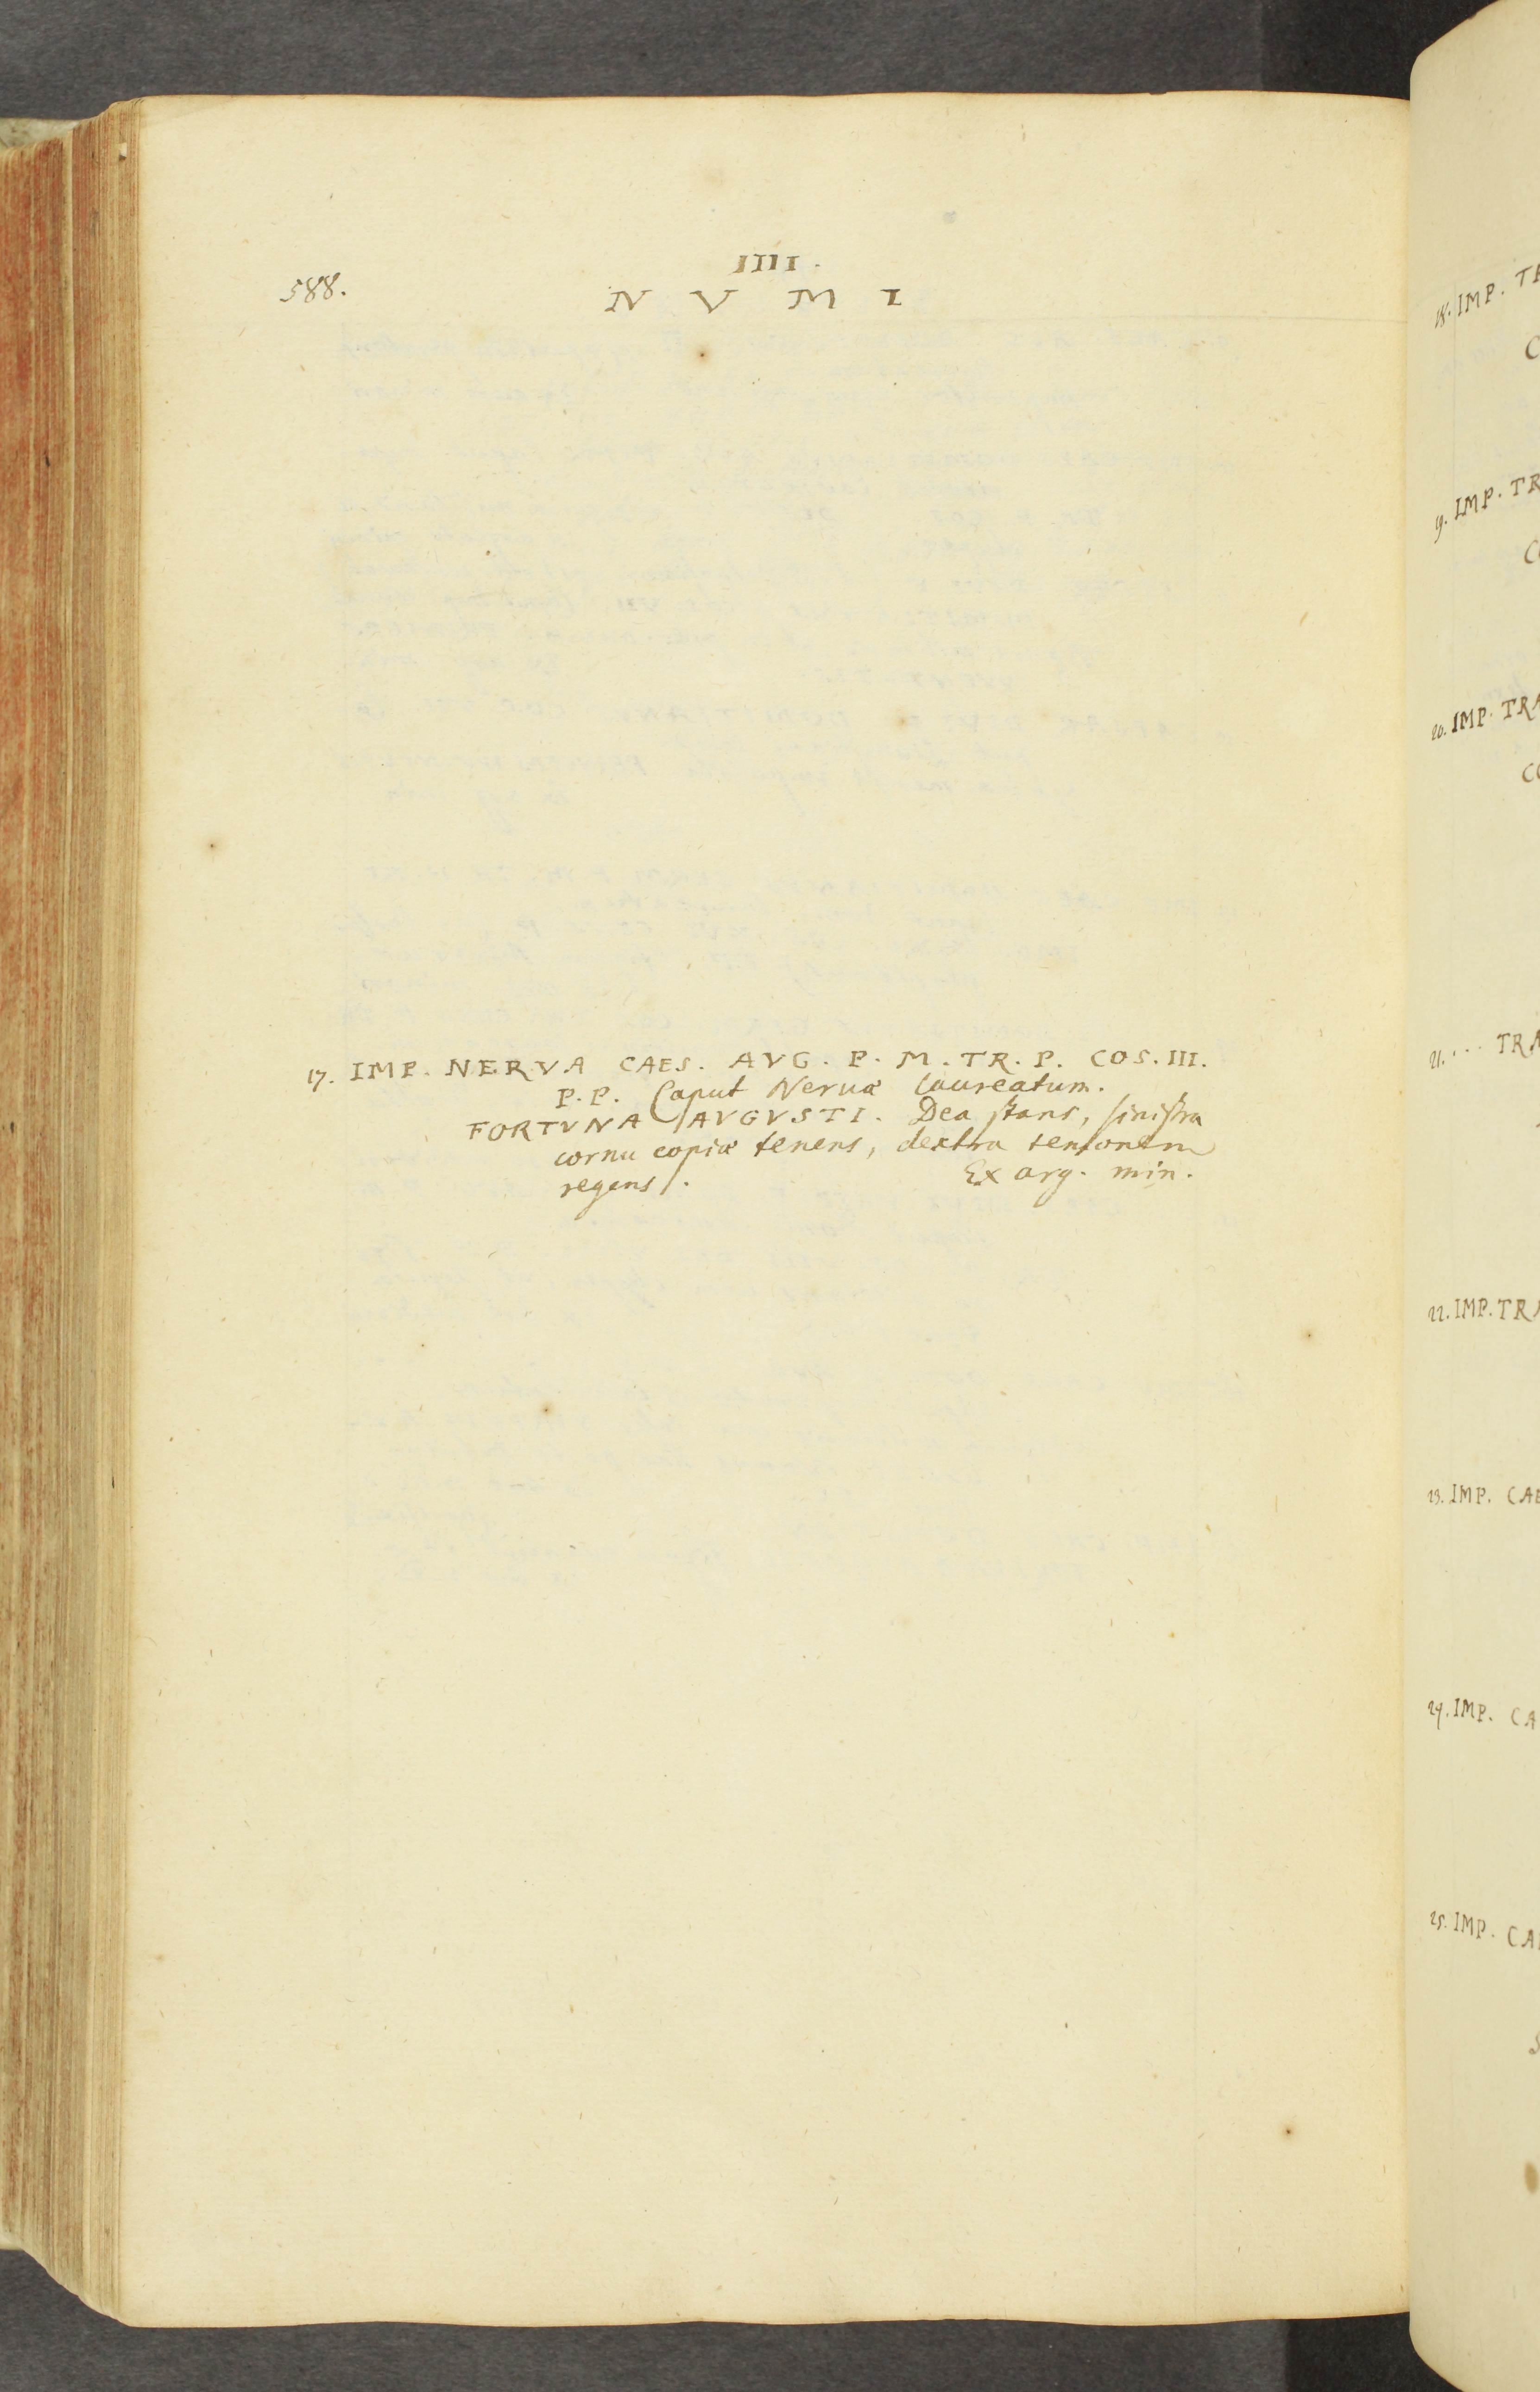 IIII.
588. NVMI
17. IMP. NERVA CAES. AVG. P. M. TR. P. COS. III.
P. P. Caput Neruæ laureatum.
FORTVNA AVGVSTI. Dea stans, sinistra
cornu copiæ tenens, dextra temonem
regens. Ex arg. min.
18. IMP.
19. IMP.
20. IMP.
21. ...
22. IMP.
23. IMP.
24. IMP.
25. IMP.